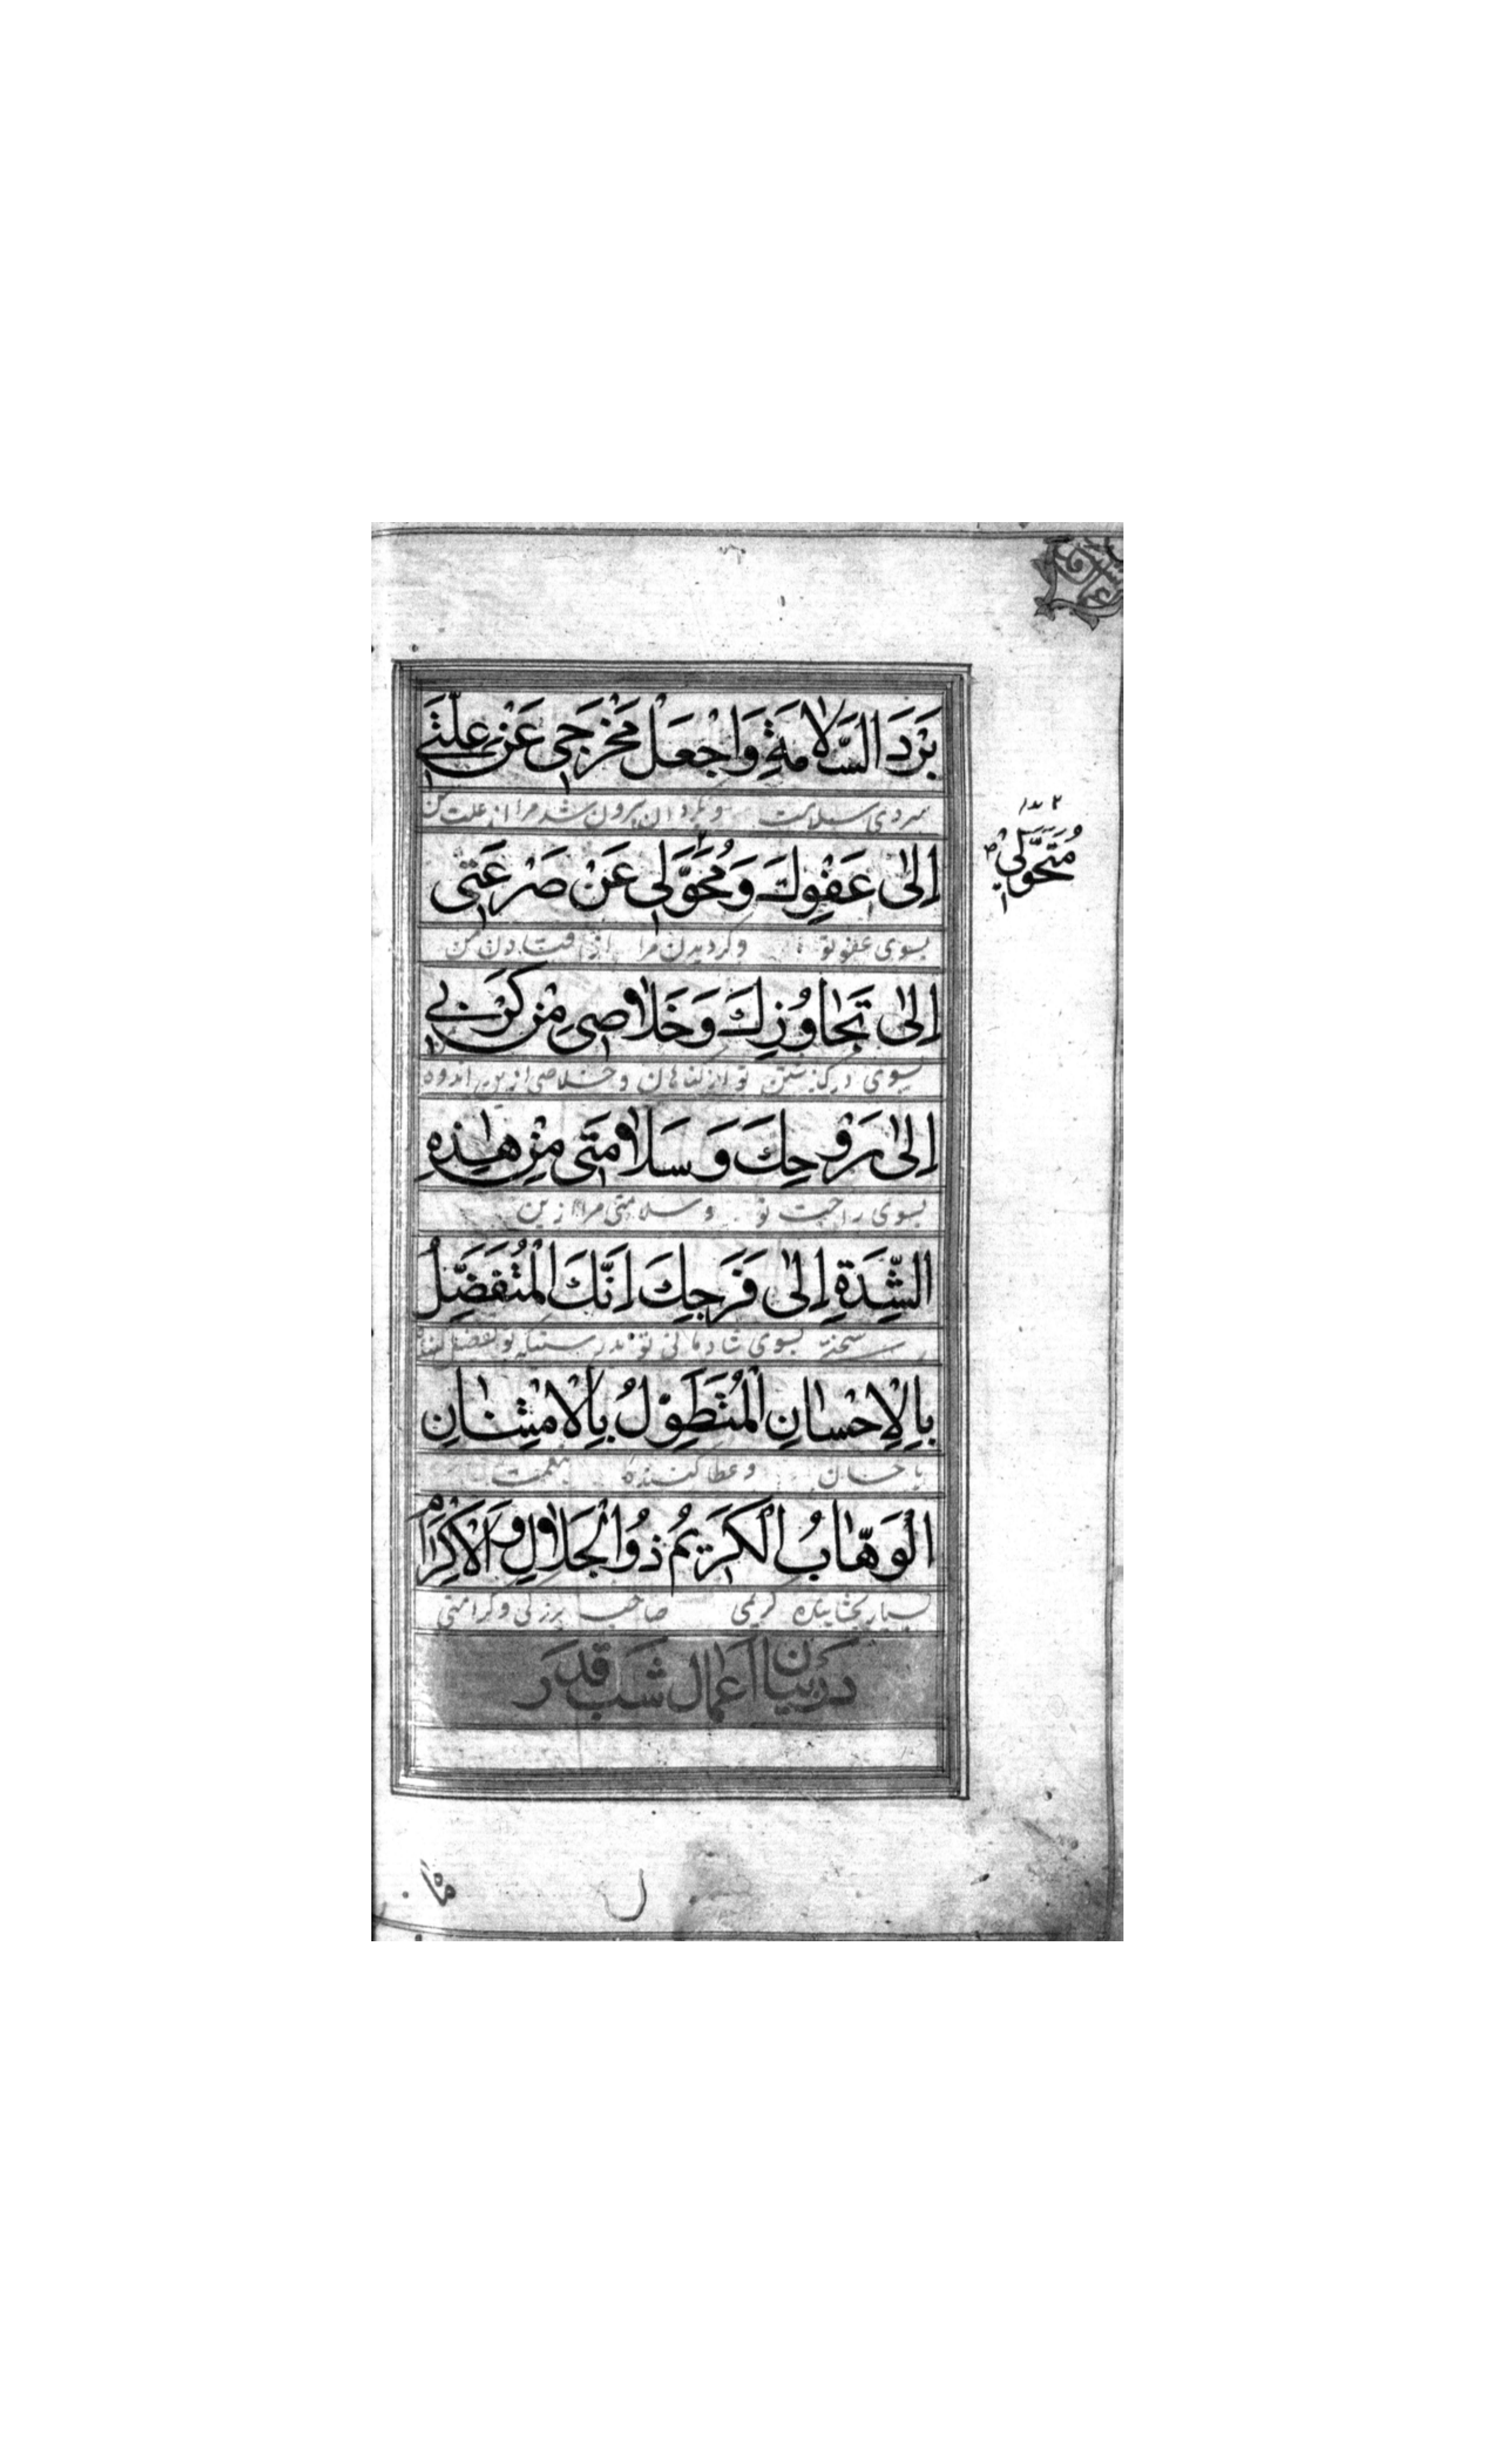 بَرْدَ السَّلَامَةِ وَاجْعَلْ مَخْرَجِي عَنْ عِلَّتِي
سردی سلامت وبگردان بیرون شدن مرا از علت من
إِلىٰ عَفْوِكَ وَمُحَوَّلِي عَنْ صَرْعَتِي
مُتَحَوَّلِي
بسوی عفو تو وگردیدن مرا از افتادن من
إِلىٰ تَجَاوُزِكَ وَخَلَاصِي مِنْ كَرْبِي
بسوی درگذشتن تو از گناهان وخلاصی از اندوه
إِلىٰ رَوْحِكَ وَسَلَامَتِي مِنْ هٰذِهِ
بسوی راحت تو وسلامتی مرا ازین
الشِّدَّةِ إِلىٰ فَرَجِكَ إِنَّكَ الْمُتَفَضِّلُ
سختی بسوی شادمانی تو بدرستیکه تو تفضل کننده
بِالْإِحْسَانِ الْمُتَطَوِّلُ بِالْاِمْتِنَانِ
باحسان وعطا کننده بنعمت
الْوَهَّابُ الْكَرِيمُ ذُو الْجَلَالِ وَالْإِكْرَامِ
بسیار بخشاینده کریمی صاحب بزرگی وگرامتی
دَر بَیَان اَعْمَال شَب قَدر